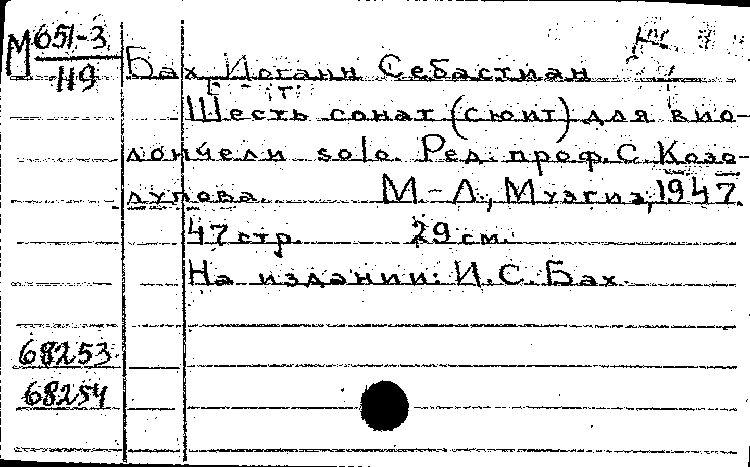 М 651-3
119
Бах Иоганн Себастиан
Шесть сонат (сюит) для вио-
лончели solo. Ред. проф. С. Козо-
лупова. М.-Л., Музгиз, 1947.
47 стр. 29 см.
На издании: И.С. Бах.
68253
68254